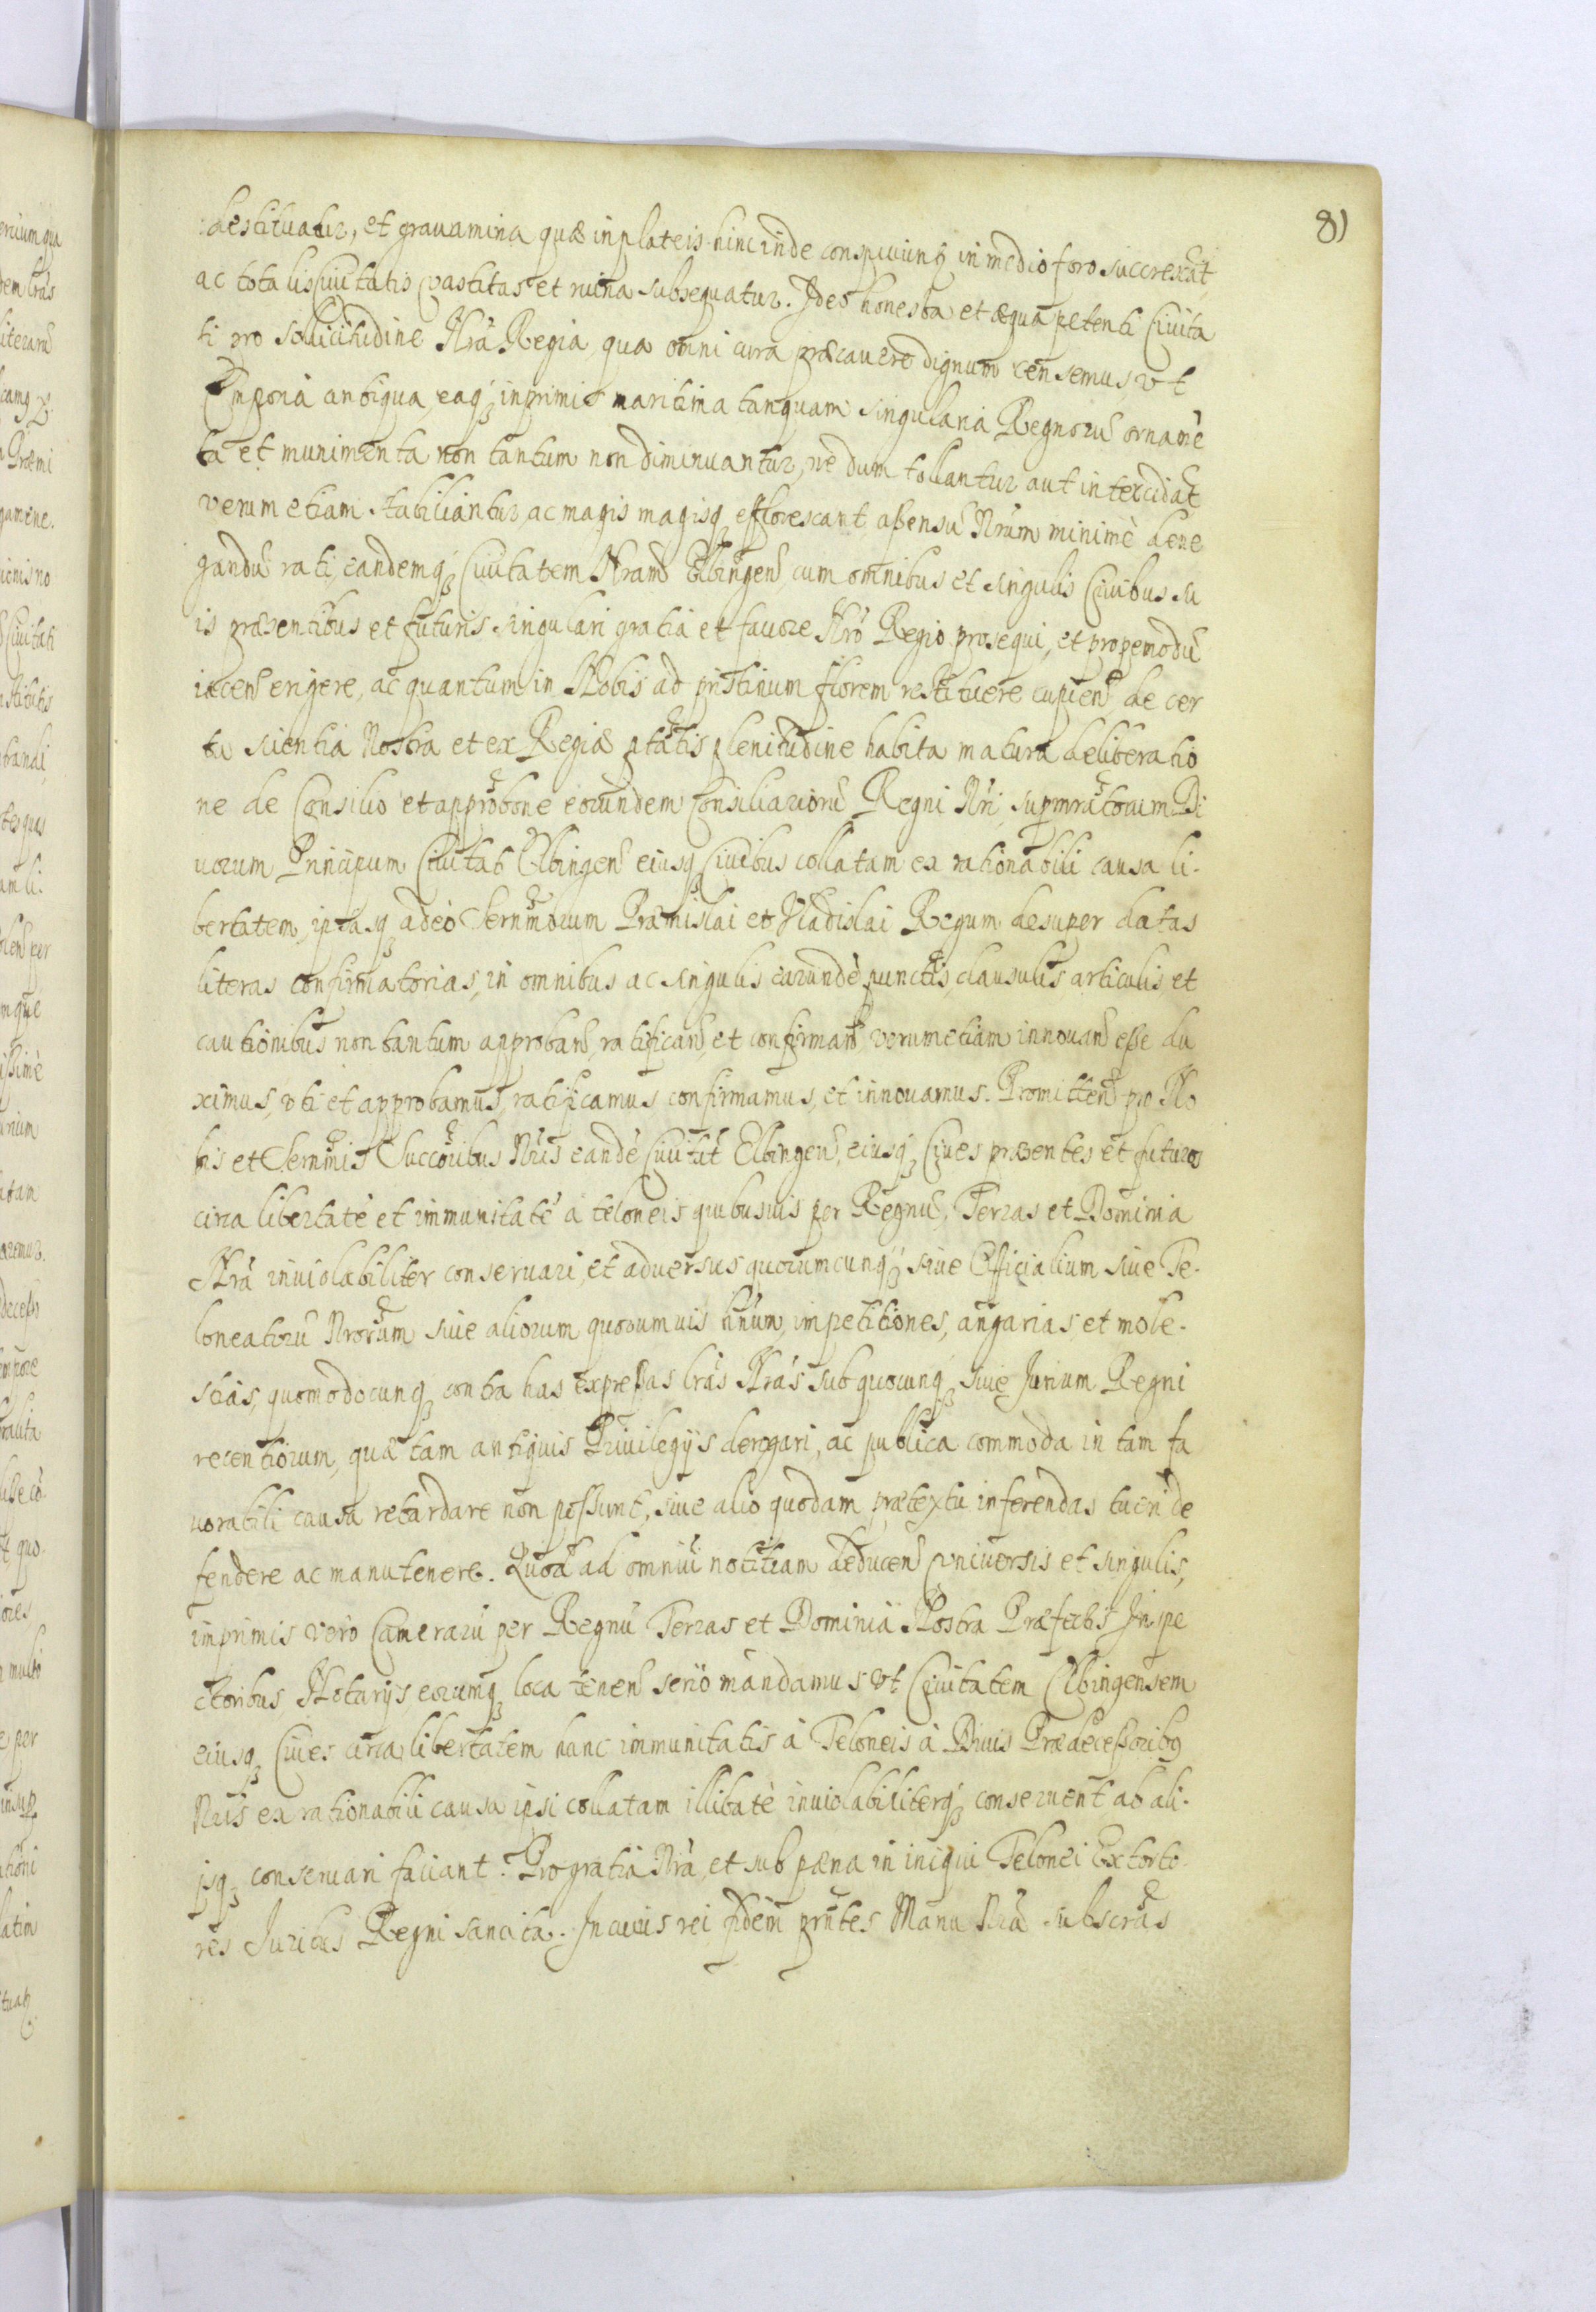 81
destituatur, et gravamina quæ in plateis hinc inde conspiciunt in medio foro succrescāt,
ac totalis Civitatis vastitas et ruina subsequatur. Ideo honesta et æqua petenti Civita
ti pro sollicitudine Nrā Regia, qua omni cura præcavere dignum censemus, vt
Emporia antiqua, eaq; inprimis maritima tanquam singularia Regnorū ornamē
ta et munimenta non tantum non diminuantur, ne dum tollantur aut intercidāt
verum etiam stabiliantur, ac magis magisq; efflorescant, assensū Nrum minimè dene
gandū rati, eandemq; Civitatem Nram Elbingens cum omnibus et singulis Civibus su
is præsentibus et futuris singulari gratia et favore Nrō Regio prosequi, et propemodū
iacens erigere, ac quantum in Nobis ad pristinum florem restituere cupiens de cer
ta scientia Nostra et ex Regiæ ptātis plenitudine habita matura deliberatio
ne de Consilio et approbōne eorundem Consiliariorū Regni Nrī, supmrātorum Di
vorum Principum Civitati Elbingens eiusq; Civibus collatam ex rationabili causa li-
bertatem, ipsasq; adeò Sernmorum Præmislai et Vladislai Regum desuper datas
literas confirmatorias, in omnibus ac singulis earundē punctis, clausulis articulis et
cautionibus non tantum approbans, ratificans, et confirmans verumetiam innovans esse du
ximus, vti et approbamus, ratificamus confirmamus, et innovamus. Promittens pro No
bis et Sernmis Succōribus Nrīs eandē Civitāt Elbingens, eiusq; Cives præsentes et futuros
circa libertatē et immunitatē à teloneis quibusvis per Regnū, Terras et Dominia
Nrā inviolabiliter conservari, et adversus quorumcunq; siue Officialium siue Te-
loneatorū Nrorum siue aliorum quorumvis hnūm, impetitiones, angarias, et mole-
stias, quomodocunq; contra has expressas lrās Nrās sub quocunq; siue Jurium Regni
recentiorum, quæ tam antiquis Privilegijs derogari, ac publica commoda in tam fa
vorabili causa retardare non possunt, siue alio quodam prætextu inferendas tueri de
fendere ac manutenere. Quod ad omniū notitiam deducens vniversis et singulis,
imprimis verò Camerarū per Regnū Terras et Dominia Nostra Præfectis Inspe
ctoribus, Notarijs, eorumq; loca tenens seriò mandamus vt Civitatem Elbingensem
eiusq; Cives circa libertatem hanc immunitatis à Teloneis à Divis Prædecessoribꝰ
Nrīs ex rationabili causa ipsi collatam illibatè inviolabiliterq; conservent ab ali-
jsq; conservari faciant. Pro gratia Nrā, et sub pæna in iniqui Telonei Extorto-
res Juribus Regni sancita. In cuius rei fidem prntes Manu Nrā subscrās